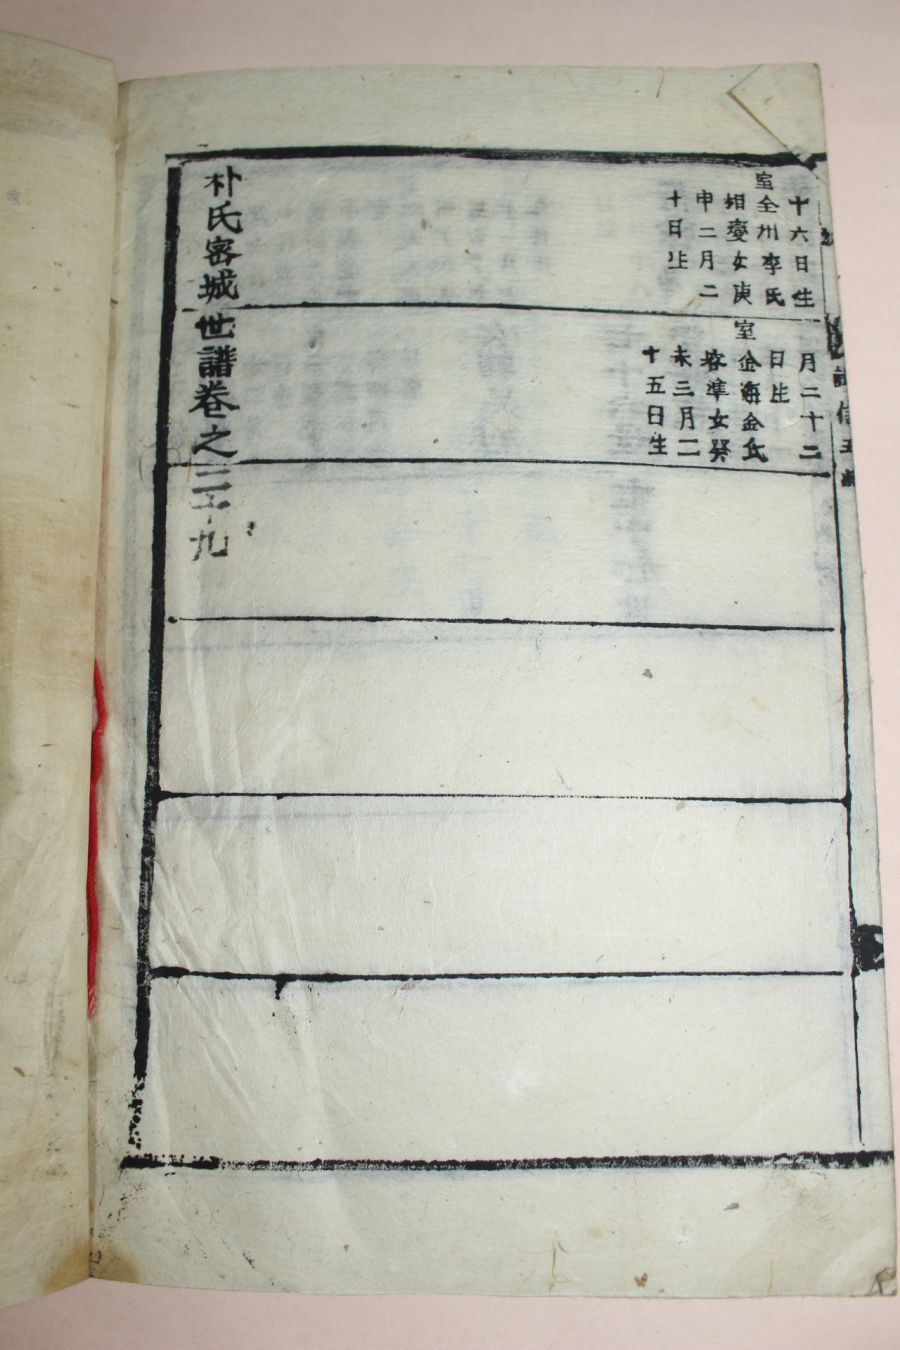 十六日生
室全州李氏
相燮女庚
申二月二
十日生
月二十二
日生
室金海金氏
容準女癸
未三月二
十五日生
朴氏密城世譜卷之二十九